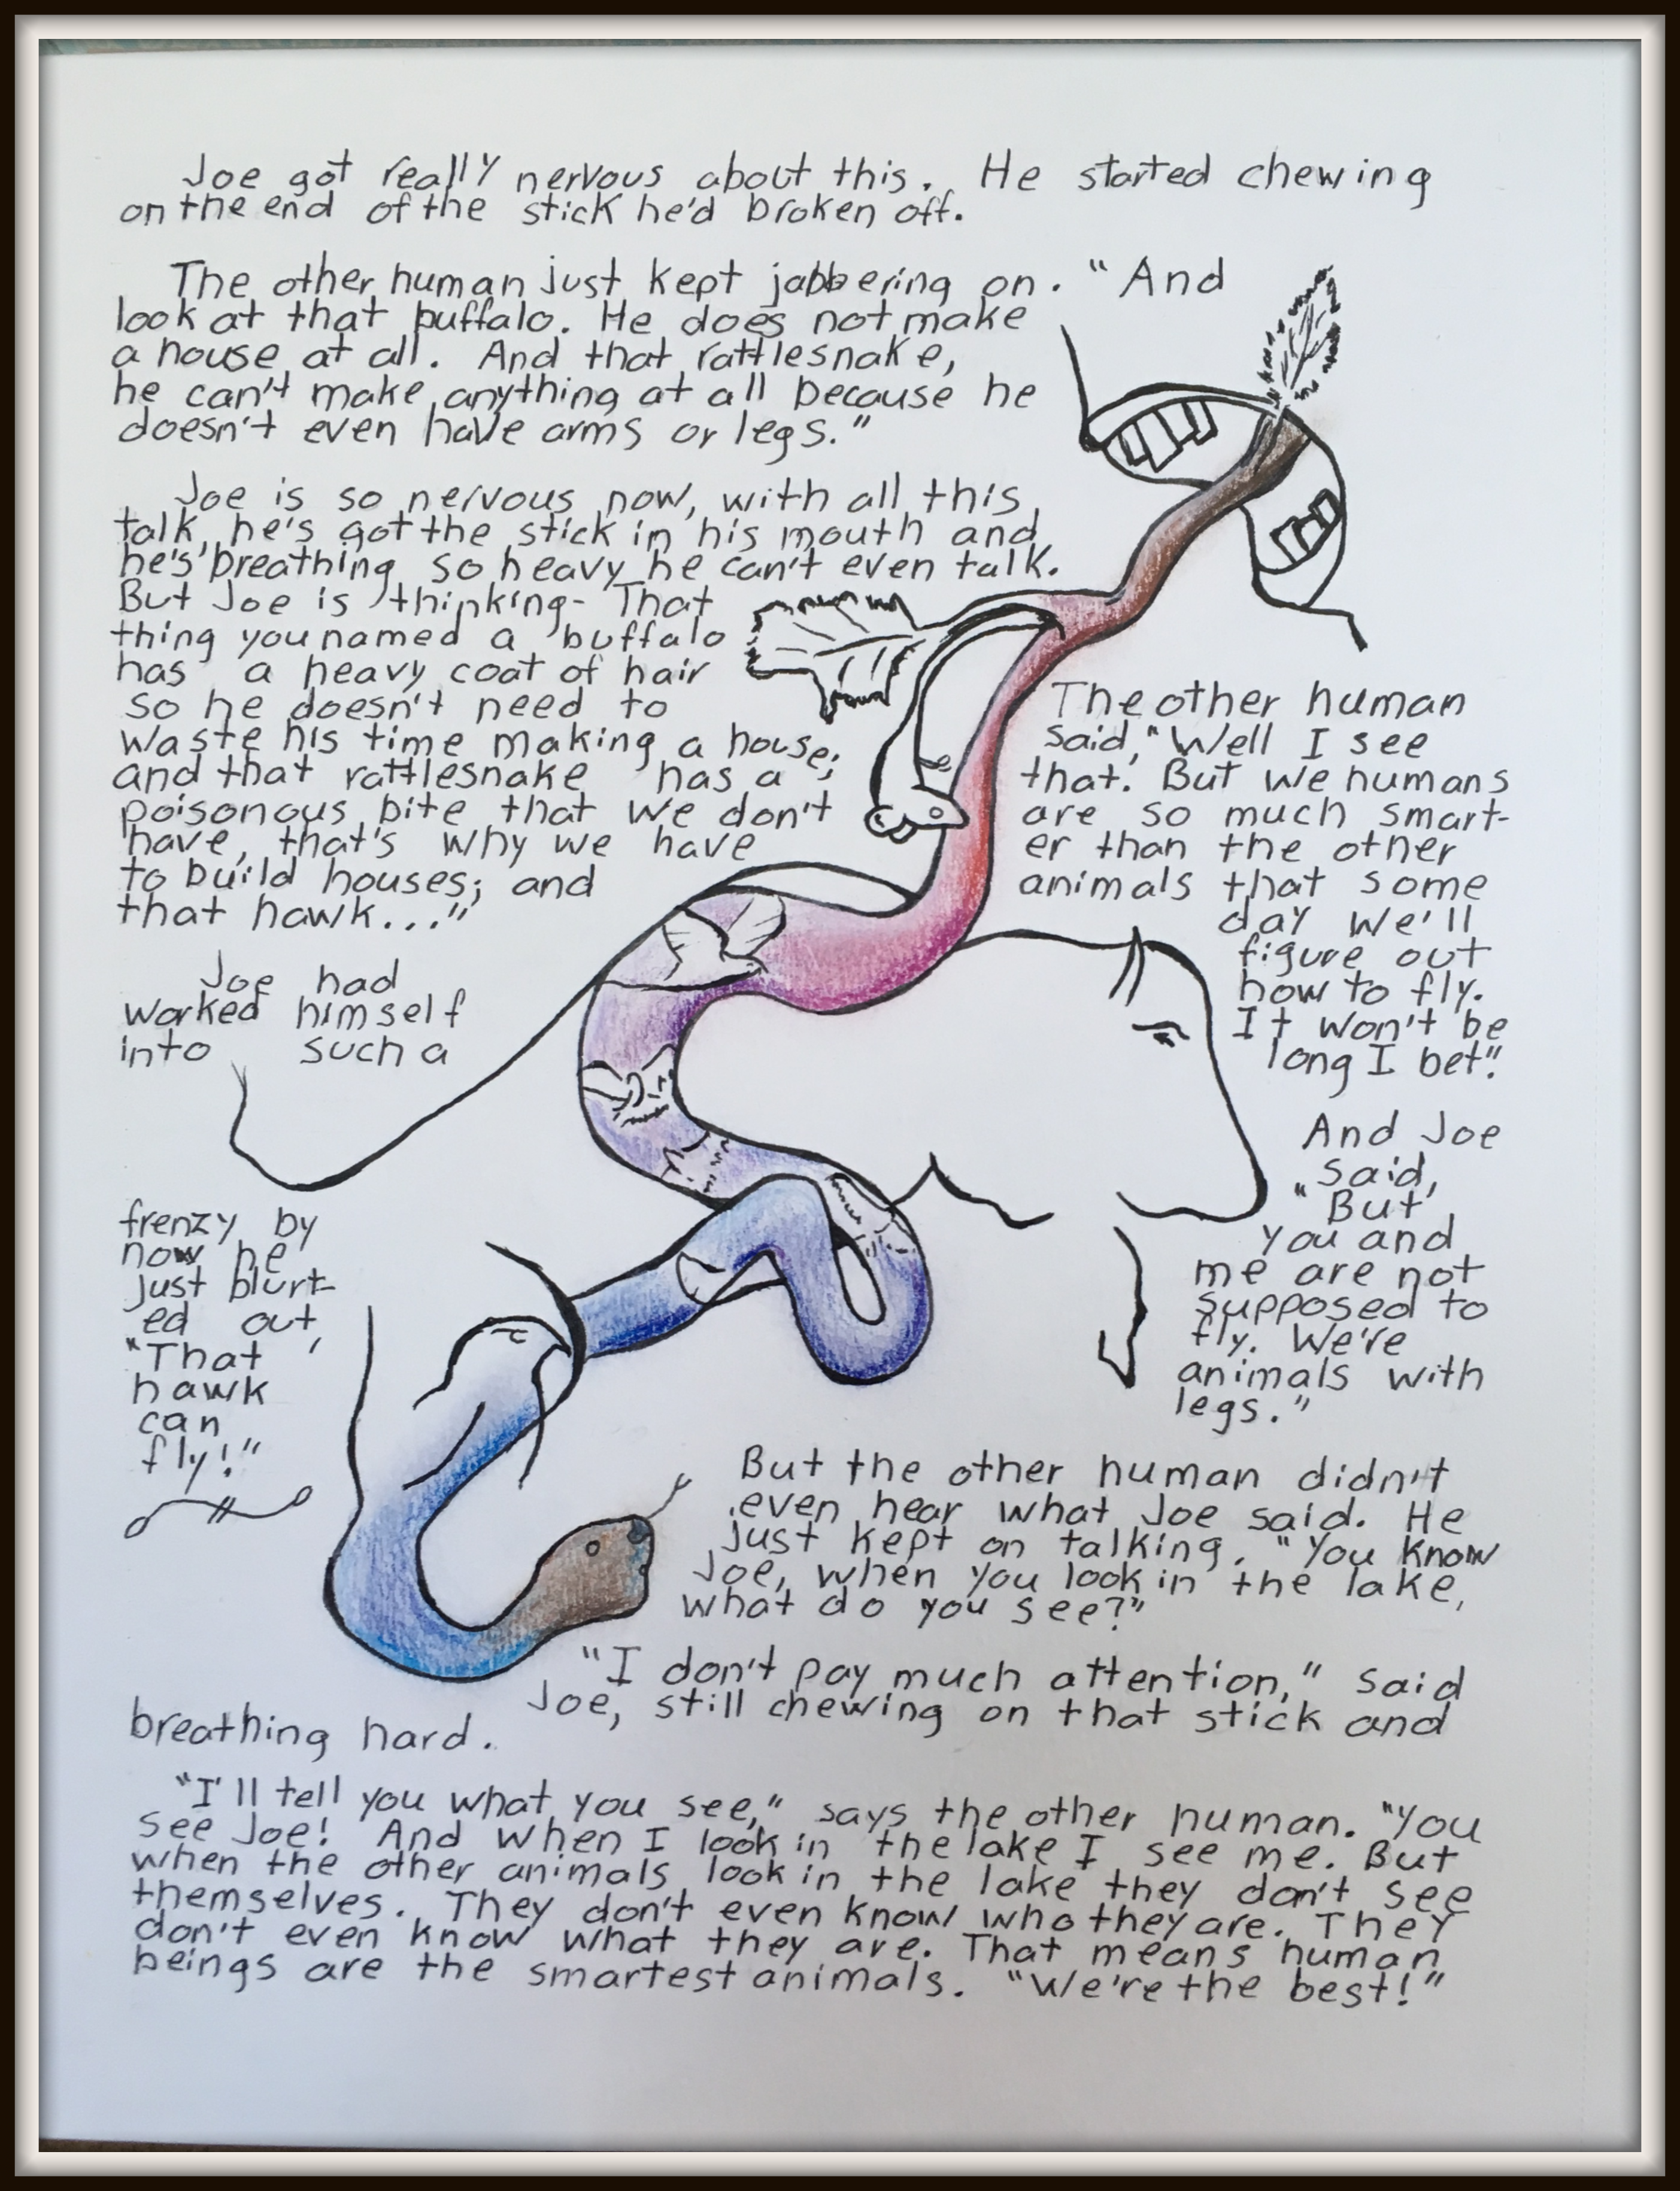 Joe got really nervous about this. He started chewing
on the end of the stick he'd broken off.
The other human just kept jabbering on. "And
look at that buffalo. He does not make
a house at all. And that rattlesnake,
he can't make anything at all because he
doesn't even have arms or legs."
Joe is so nervous now, with all this
talk, he's got the stick in his mouth and
he's breathing so heavy he can't even talk.
But Joe is thinking- That
thing you named a buffalo
has a heavy coat of hair
so he doesn't need to
waste his time making a house;
and that rattlesnake has a
poisonous bite that we don't
have, that's why we have
to build houses; and
that hawk..."
Joe had
worked himself
into such a
frenzy by
now he
just blurt-
ed out,
"That
hawk
can
fly!"
The other human
said, "Well I see
that. But we humans
are so much smart-
er than the other
animals that some
day we'll
figure out
how to fly.
It won't be
long I bet."
And Joe
said,
"But
you and
me are not
supposed to
fly. We're
animals with
legs."
But the other human didn't
even hear what Joe said. He
just kept on talking. "You know
Joe, when you look in the lake,
what do you see?"
"I don't pay much attention," said
Joe, still chewing on that stick and
breathing hard.
"I'll tell you what you see," says the other human. "You
see Joe! And when I look in the lake I see me. But
when the other animals look in the lake they don't see
themselves. They don't even know who they are. They
don't even know what they are. That means human
beings are the smartest animals. "We're the best!"